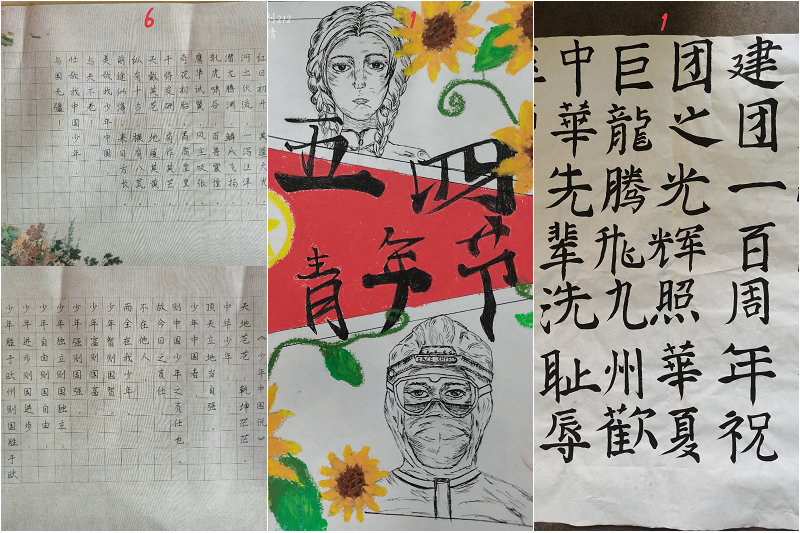 6
红日初升 其道大光
河出伏流 一泻汪洋
潜龙腾渊 鳞爪飞扬
乳虎啸谷 百兽震惶
鹰隼试翼 风尘吸张
奇花初胎 矞矞皇皇
干将发硎 有作其芒
天戴其苍 地履其黄
纵有千古 横有八荒
前途似海 来日方长
美哉我少年中国
与天不老
壮哉我中国少年
与国无疆
《少年中国说》
天地苍苍,乾坤茫茫,
中华少年,
顶天立地当自强.
少年中国者,
则中国少年之责任也.
故今日之责任
不在他人
而全在我少年
少年智则国智
少年富则国富
少年强则国强.
少年独立则国独立.
少年自由则国自由.
少年进步则国进步.
少年胜于欧州则国胜于欧
1
212
五四
青年节
FACE SHIELD
1
建团一百周年祝
团之光辉照華夏
巨龍腾飛九州歡
中華先辈洗耻辱